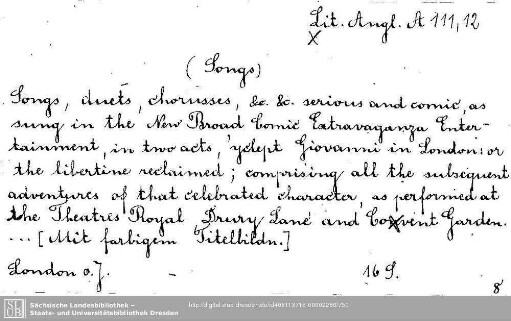 Lit. Angl. A 111,12
X
(Songs)
Songs, duets, chorusses, &c. &c. serious and comic, as
sung in the New Broad Comic Extravaganza Enter-
tainment, in two acts, yclept Giovanni in London: or
the libertine reclaimed; comprising all the subsequent
adventures of that celebrated character, as performed at
the Theatres Royal Drury Lane and Covent Garden.
... [Mit farbigem Titelbildn.]
London o. J. – 16 S.
8
SLUB
Sächsische Landesbibliothek –
Staats- und Universitätsbibliothek Dresden